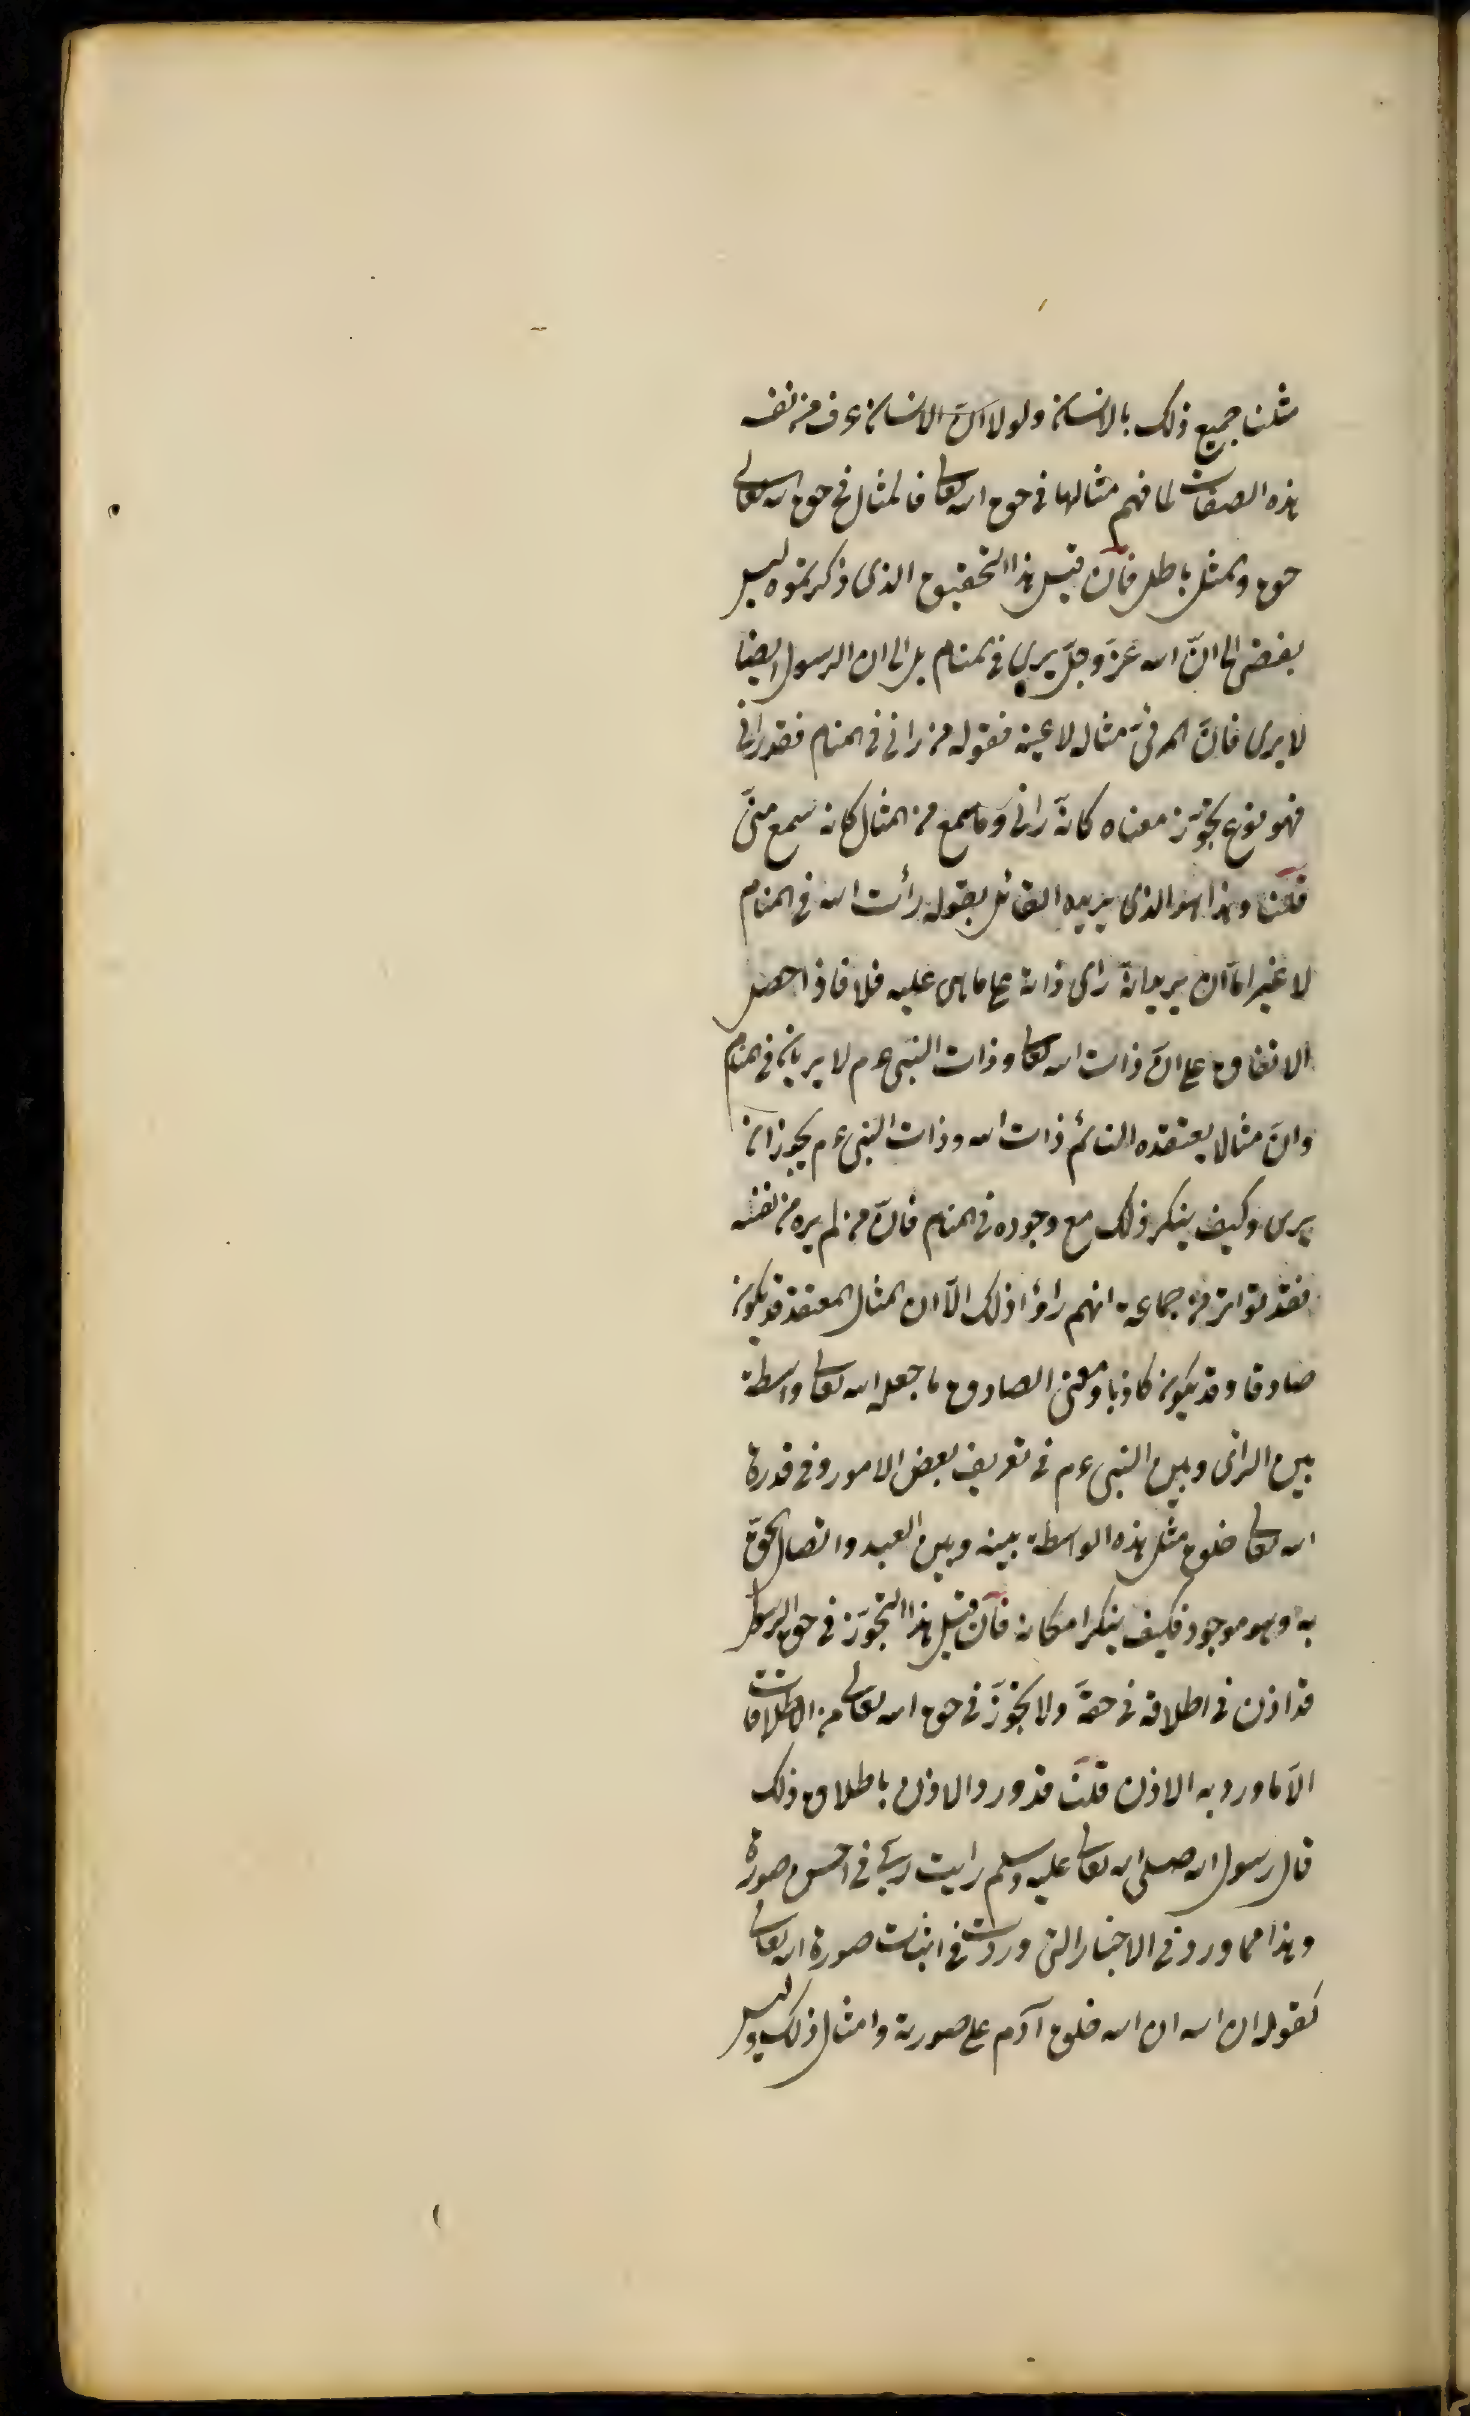 مثلنا جميع ذلك بالانسان ولولا انّ الانسان عرف من نفسه
هذه الصفات لما فهم مثالها فى حق الله تعالى فالمثال فى حق الله تعالى
حق والمثل باطل فان قيل هذا التحقيق الذى ذكرتموه ليس
يفضى الى انّ الله عزّ وجلّ يرى فى المنام بل الى ان الرسول ايضا
لا يرى فانّ المرئىّ مثاله لا عينه فقوله من رانى فى المنام فقد رانى
فهو نوع تجوّز معناه كانّه رانى وما سمع من المثال كانه سمع منّى
قلنا وهذا هو الذى يريده القائل بقوله رأت الله فى المنام
لا غير امّا ان يريد انّه راى ذاته على ما هى عليه فلا فاذا حصل
الاتفاق على انّ ذات الله تعالى وذات النبى عم لا يريان فى المنام
وانّ مثالا يعتقده النائم ذات الله وذات النبى عم يجوز ان
يرى وكيف ينكر ذلك مع وجوده فى المنام فانّ من لم يره من نفسه
فقد تواتر من جماعة انهم راؤا ذلك الّا ان المثال المعتقد قد يكون
صادقا وقد يكون كاذبا ومعنى الصادق ما جعله الله تعالى واسطة
بين الرائى وبين النبى عم فى تعريف بعض الامور وفى قدرة
الله تعالى خلق مثل هذه الواسطة بينه وبين العبد واتصال الحقّ
به وهو موجود فكيف ينكر امكانه فان قيل هذا التجوّز فى حق الرسول
قد اذن فى اطلاقه فى حقّه ولا يجوز فى حق الله تعالى من الاطلاقات
الّا ما ورد به الاذن قلنا قد ورد الاذن باطلاق ذلك
قال رسول الله صلى الله تعالى عليه وسلم رايت ربّى فى احسن صورة
وهذا مما ورد فى الاخبار التى وردت فى اثبات صورة الله تعالى
كقوله ان الله ان الله خلق آدم على صورته وامثال ذلك وليس